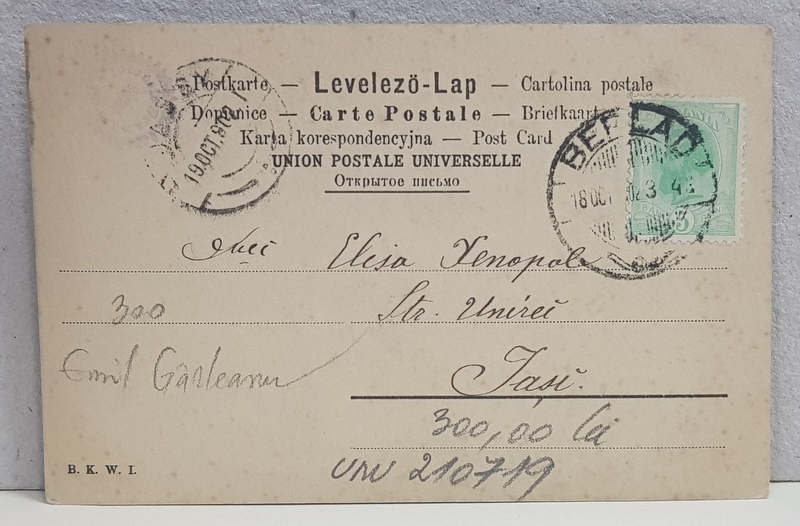 Postkarte — Levelezö-Lap — Cartolina postale
Dopisnice — Carte Postale — Briefkaart
Karta korespondencyjna — Post Card
UNION POSTALE UNIVERSELLE
Открытое письмо
19 OCT. 902
BERLAD
18 OCT 902 3 4
5
Elisa Xenopol
300
Str. Unirei
Emil Gârleanu
Iași.
300,00 lei
B. K. W. I.
210719